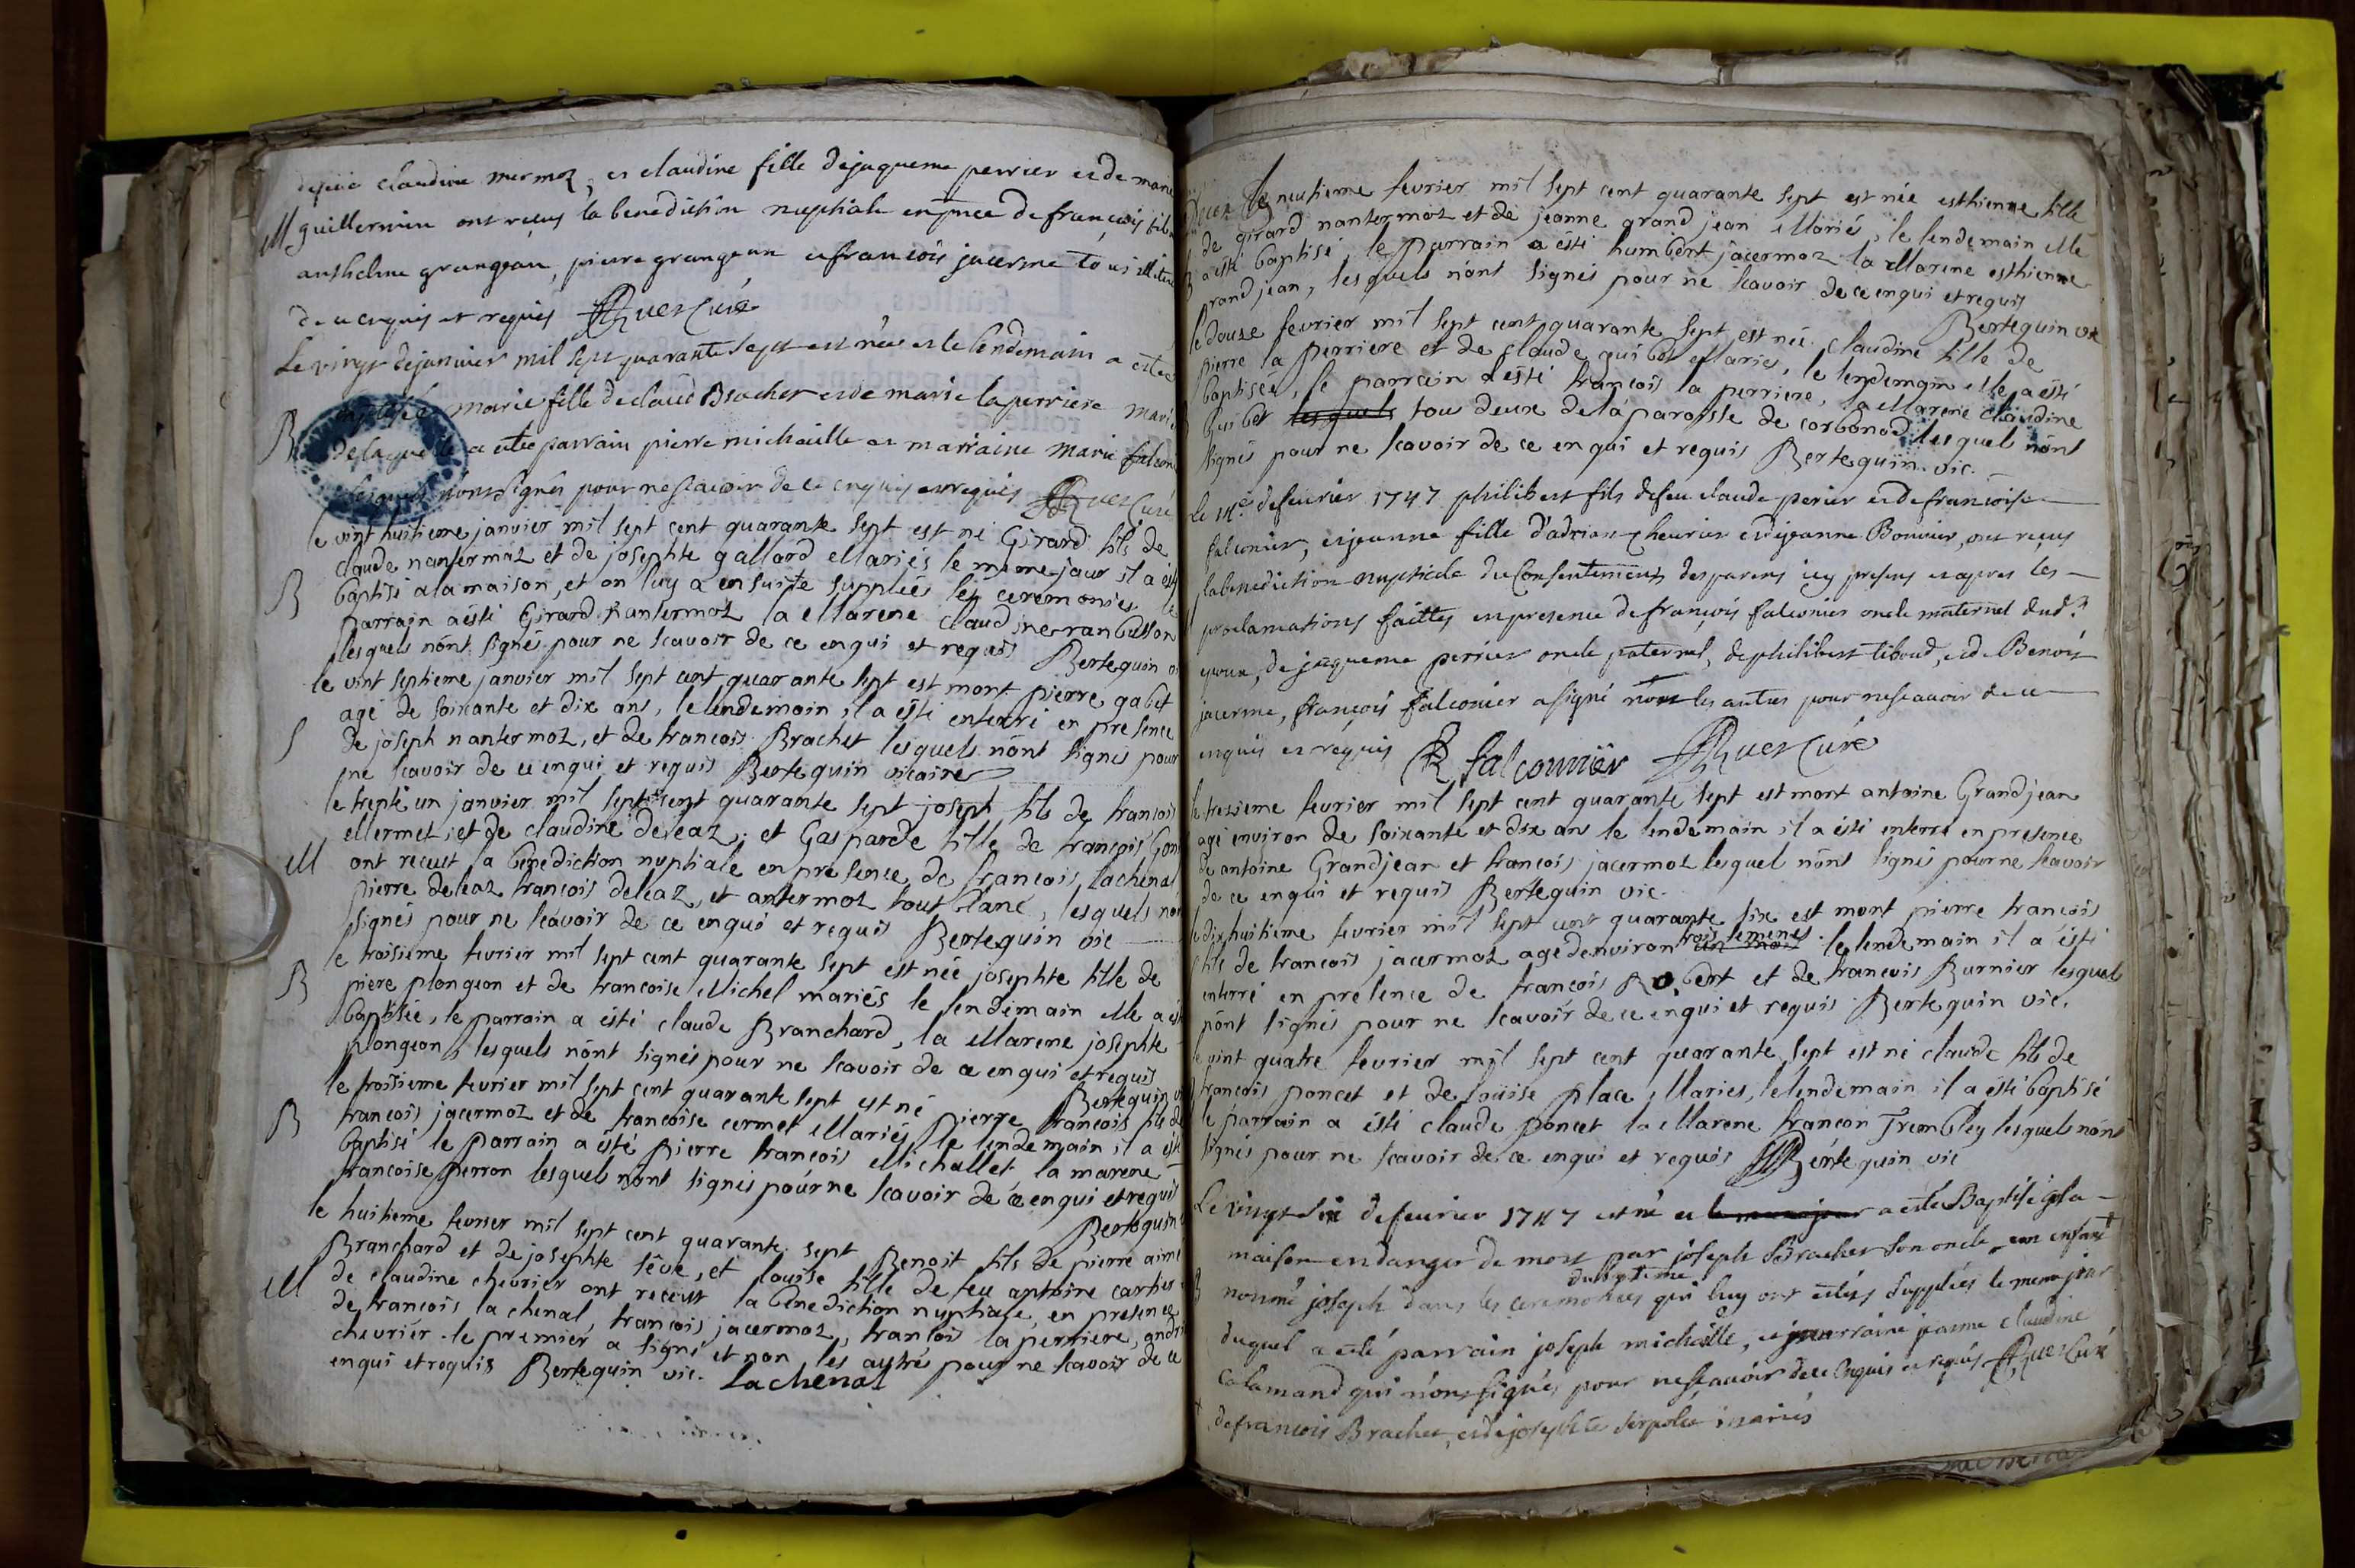 defeüe claudine mermoz, et claudine fille dejaqueme perrier et de marie
M guillermin ont reçus la benediction nuptiale en pnce de françois
anthelme grangean, pierre grangean et françois jacerme
de ce enquis et requis Ruer Curé
Le vingt dejanvier mil sept quarante sept est née et le lendemain a este
B baptisée marie fille declaud Brachet et de marie laperriere mariés
delaquelle a este parrain pierre michaille et marraine marie falconier
lesquels n'ont signés pour ne scavoir de ce enquis et requis Ruer Curé
le vint huitieme janvier mil sept cent quarante sept est né Girard fils de
claude nantermoz et de josephte gallard Mariés le meme jour il a esté
B baptisé a la maison, et on luy a ensuite supplées les ceremonies le
parrain a esti Girard nantermoz la Marene claudine ranbusson
lesquels nônt signé pour ne scavoir de ce enqui et requis Bertequin
le vint septieme janvier mil sept cent quarante sept est mort pierre gabet
agé de soixante et dix ans, le lendemain il a ésti enterré en presence
S de joseph nantermoz, et de francois Brachet lesquels nônt signés pour
ne scavoir de ce enqui et requis Bertequin vicaire
le trente un janvier mil sept cent quarante sept joseph fils de francois
Mermet et de claudine deleaz, et Gasparde fille de françois
M ont recust la benediction nuptiale en presence de francois lachenal
pierre deleaz francois deleaz, et antermoz tout , lesquels nônt
signés pour ne scavoir de ce enqui et requis Bertequin vic
le troisieme fevrier mil sept cent quarante sept est née josephte fille de
B piere plongeon et de francoise Michel mariés le lendemain elle a ésté
baptisée, le parrain a ésti claude Branchard, la Marene josephte
plongeon, lesquels nônt signés pour ne scavoir de ce enqui et requis
Bertequin
le troisieme fevrier mil sept cent quarante sept est né pierre francois fils de
B francois jacermoz et de francoise cermet Mariés le lendemain il a ésté
baptisé le parrain a ésté pierre francois Michallet la marene
francoise perron lesquels nônt signés pour ne scavoir de ce enqui et requis
Bertequin
le huitieme fevrier mil sept cent quarante sept Benoit fils de pierre aimé
Branchard et de josephte sêve, et louise fille de feu antoine cartier
M de claudine chevrier ont recust la benediction nuptiale, en presence
de francois la chenal, francois jacermoz, françois laperriere, andré
chevrier le premier a signé et non les autres pour ne scavoir de ce
enqui et requis Bertequin vic. Lachenal
le neutieme fevrier mil sept cent quarante sept est née esthienne fille
de girard nantermoz et de jeanne grand jean Mariés, le lendemain elle
B a ésté baptisé, le parrain a ésti humbert jacermoz la Marene esthienne
grand jean, lesquels n'ont signés pour ne scavoir de ce enqui et requis
Bertequin vic
le douze fevrier mil sept cent quarante sept est née claudine fille de
pierre la perriere et de claude guibet Mariés, le lendemain elle a ésti
baptisée, le parrain a ésti françois la perriere, la Marene claudine
Guibet lesquels tou deux de la paroisse de corbonod, lesquels nônt
signés pour ne scavoir de ce enqui et requis Bertequin vic.
Le 14e defeuvrier 1747 philibert fils defeu claude perier et de francoise
falconier, et jeanne fille d'adrian cheurier et dejeanne Bonnier, ont reçus
la benediction nuptiale du consentement des parens icy presens et apres les
proclamations faittes en presence de françois falconier oncle maternel dud.
epoux, de jaqueme perrier oncle paternel, de philibert tiboud, et de Benoit
jacerme, françois falconier a signé non les autres pour ne scavoir de ce
enquis et réquis falconnier Ruer Curé
le tresieme fevrier mil sept cent quarante sept est mort antoine Grandjean
agé environ de soixante et dix ans le lendemain il a ésti enterré en presence
de antoine Grandjean et francois jacermoz lesquel nônt signés pour ne scavoir
de ce enqui et requis Bertequin vic.
le dixhuitieme fevrier mil sept cent quarante six est mort pierre francois
fils de francois jacermoz age denviron un mois trois semenes le lendemain il a ésti
enterré en presence de francois Robert et de francois Burnier lesquel
nônt signés pour ne scavoir de ce enqui et requis Bertequin vic.
le vint quatre fevrier mil sept cent quarante sept est né claude fils de
francois poncet et de loüise place, Maries, le lendemain il a ésti baptisé
le parrain a ésti claude poncet la Marene françon Trembley lesquels nônt
signés pour ne scavoir de ce enqui et requis Bertequin vic
Le vingt six defeuvrier 1747 est né et le meme jour a este Baptisé a la
maison en danger de mort par joseph Brachet son oncle un enfant
nommé joseph dans les ceremonies du baptême qui luy ont estées supplées le meme jour
duquel a esté parrain joseph michaille, et marraine jeanne claudine
Calamand qui n'ont signés pour ne scavoir de ce enquis et requis Ruer Curé
+ de francois Brachet, et de josephte serpolet mariés